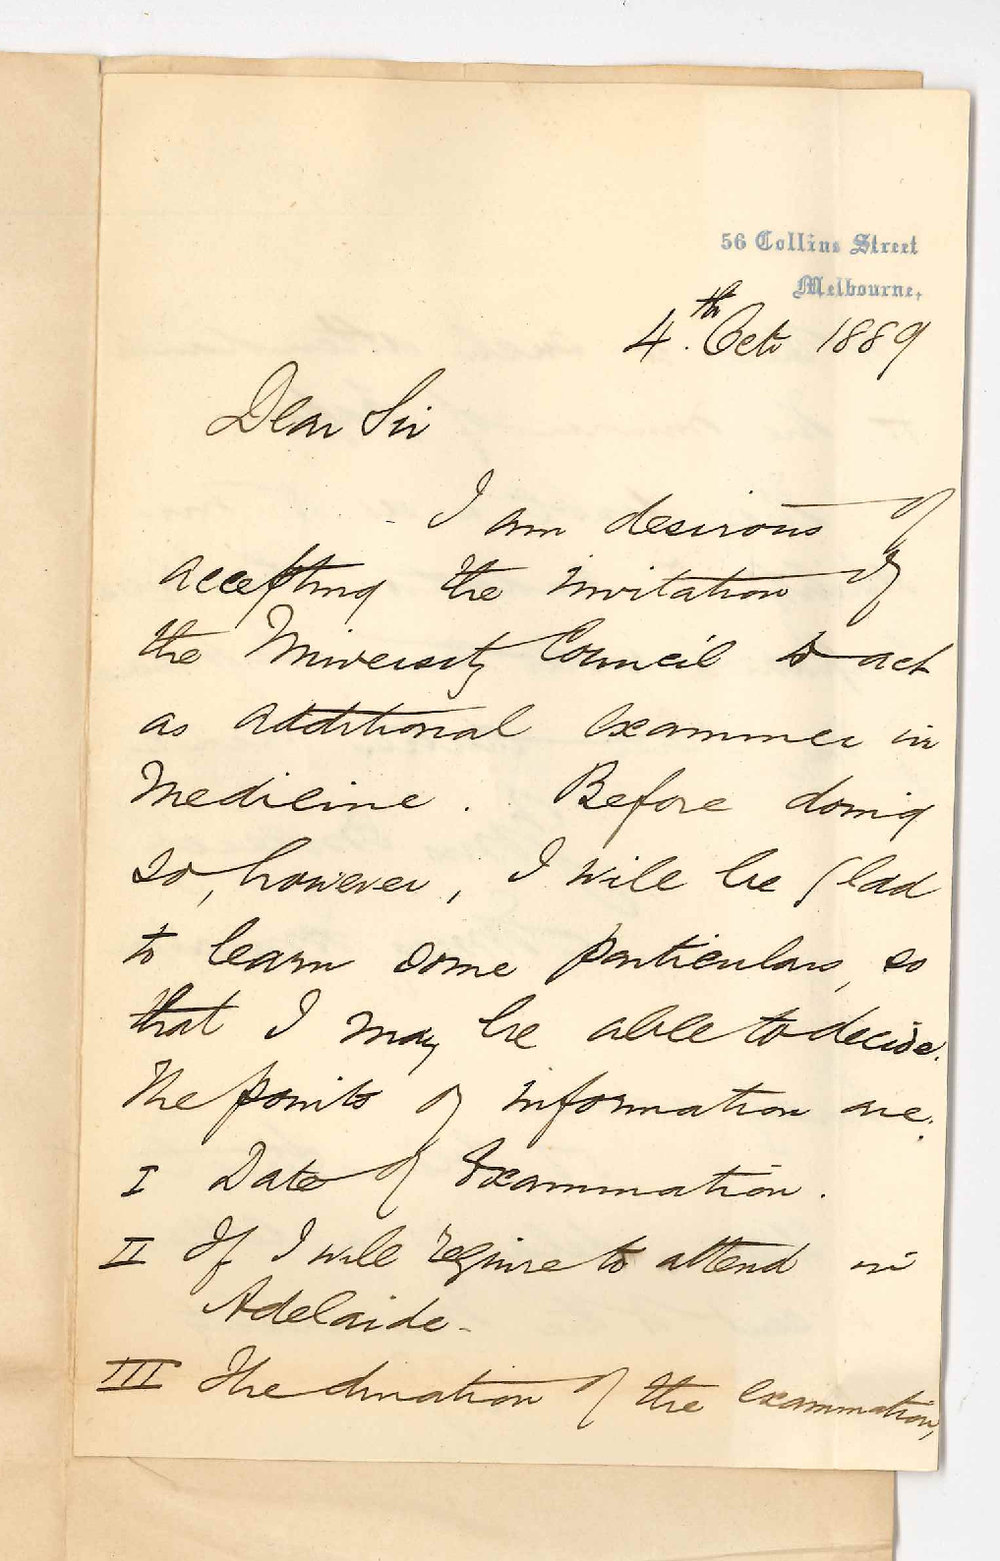 56 Collins Street
Melbourne,
4th. Octr 1889
Dear Sir
I am desirous of
accepting the invitation of
the University Council to act
as additional examiner in
Medicine. Before doing
so, however, I will be glad
to learn some particulars, so
that I may be able to decide.
The points of information are:
I Date of Examination.
II If I will require to attend in
Adelaide.
III The duration of the examination,